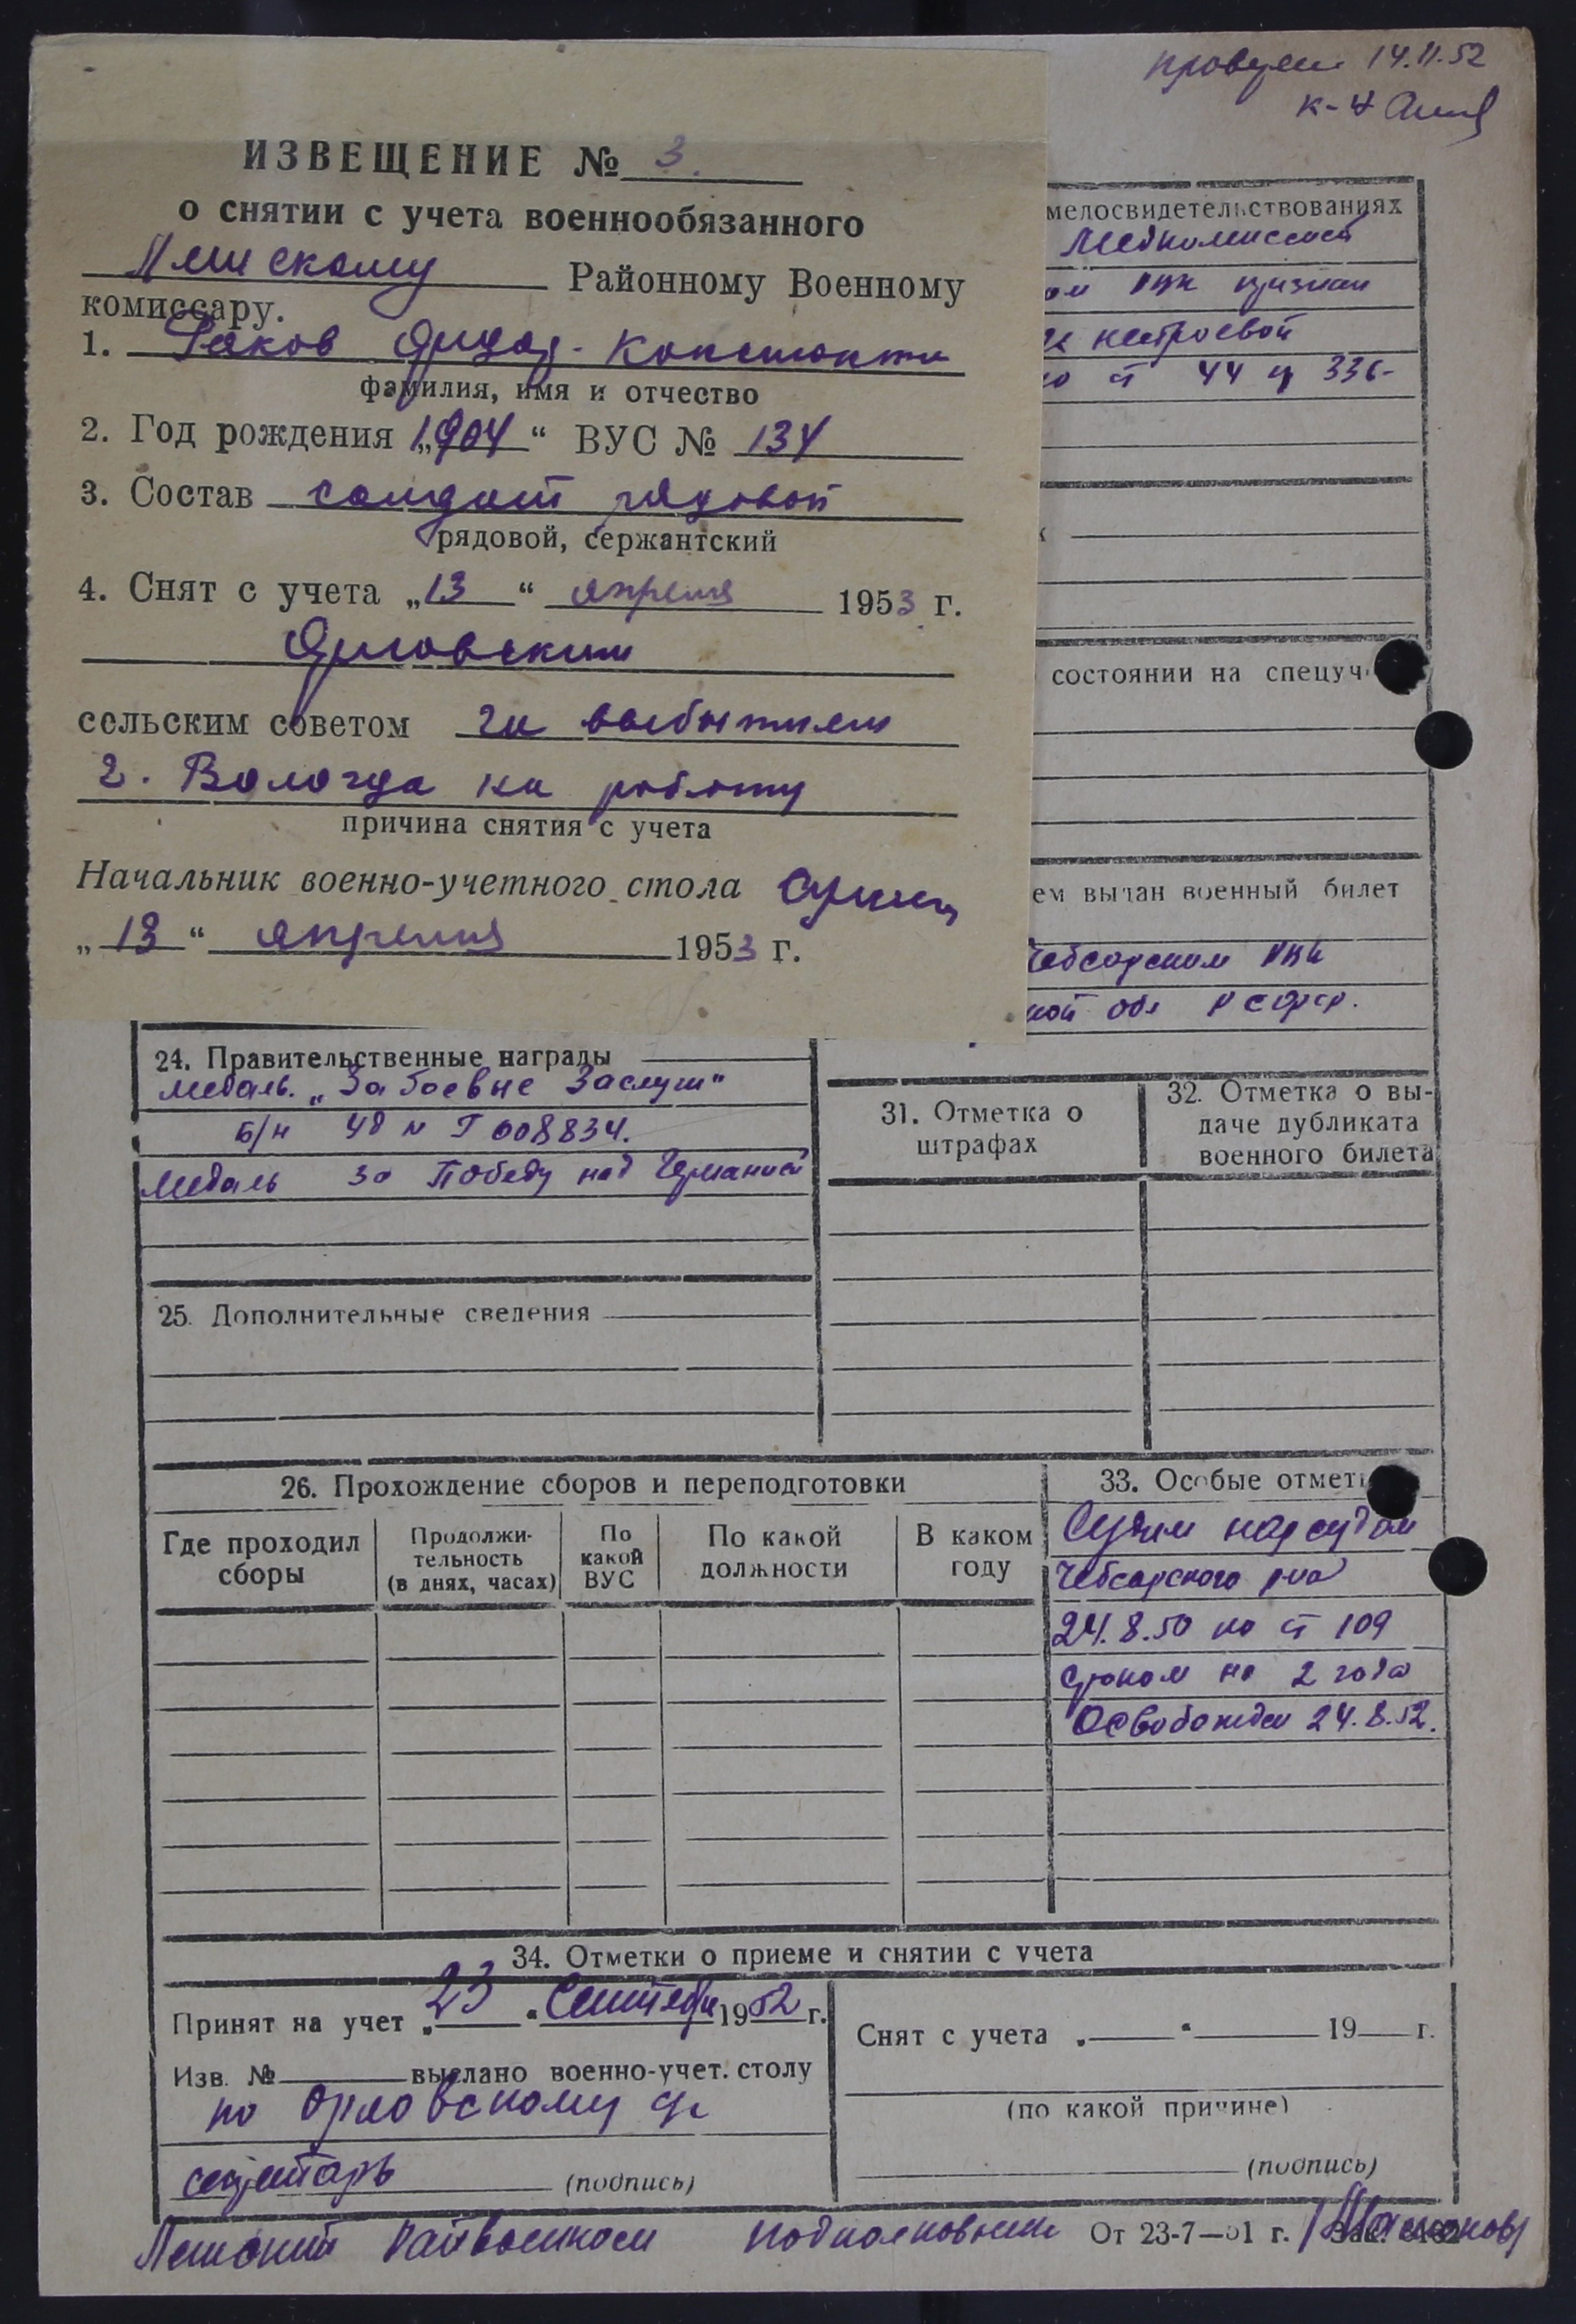 14.11.52
к-н
ИЗВЕЩЕНИЕ № 3.
о снятии с учета военнообязанного
Районному Военному
комиссару.
1.
фамилия, имя и отчество
2. Год рождения „1904“ ВУС № 134
3. Состав солдат рядовой
рядовой, сержантский
4. Снят с учета „13“ апреля 1953 г.
Орловским
сельским советом за выбытием
г. Вологда на работу
причина снятия с учета
Начальник военно-учетного стола
„13“ апреля 1953 г.
мелосвидетельствованиях
Медкомиссией
ом РВК признан
нестроевой
по ст 44 пр 336-
состоянии на спецуч
ем выдан военный билет
Чебсарским РВК
ной обл РСФСР.
24. Правительственные награды
медаль „За боевые Заслуги“
Б/н уд № Г 008834.
Медаль За Победу над Германией
25. Дополнительные сведения
31. Отметка о
штрафах
32. Отметка о вы-
даче дубликата
военного билета
26. Прохождение сборов и переподготовки
Где проходил
сборы
Продолжи-
тельность
(в днях, часах)
По
какой
ВУС
По какой
должности
В каком
году
33. Особые отмет
Судим нарсудом
Чебсарского р-на
24.8.50 по ст 109
сроком на 2 года
Освобожден 24.8.52.
34. Отметки о приеме и снятии с учета
Принят на учет „23“ Сентября 1952 г.
Изв. № выслано военно-учет. столу
по Орловскому с/с
секретарь (подпись)
Снят с учета „ “ 19 г.
(по какой причине)
(подпись)
Райвоенком подполковник
От 23-7—51 г. Зак.